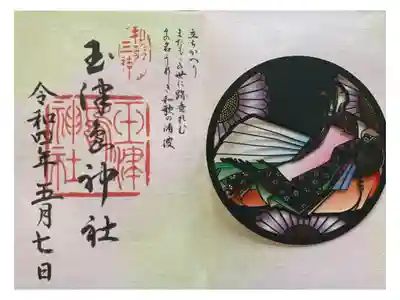 立ちかへり
またもこの世に跡垂れむ
その名うれしき和歌の浦波
和歌三神
玉津島神社
玉津島神社
令和四年五月七日